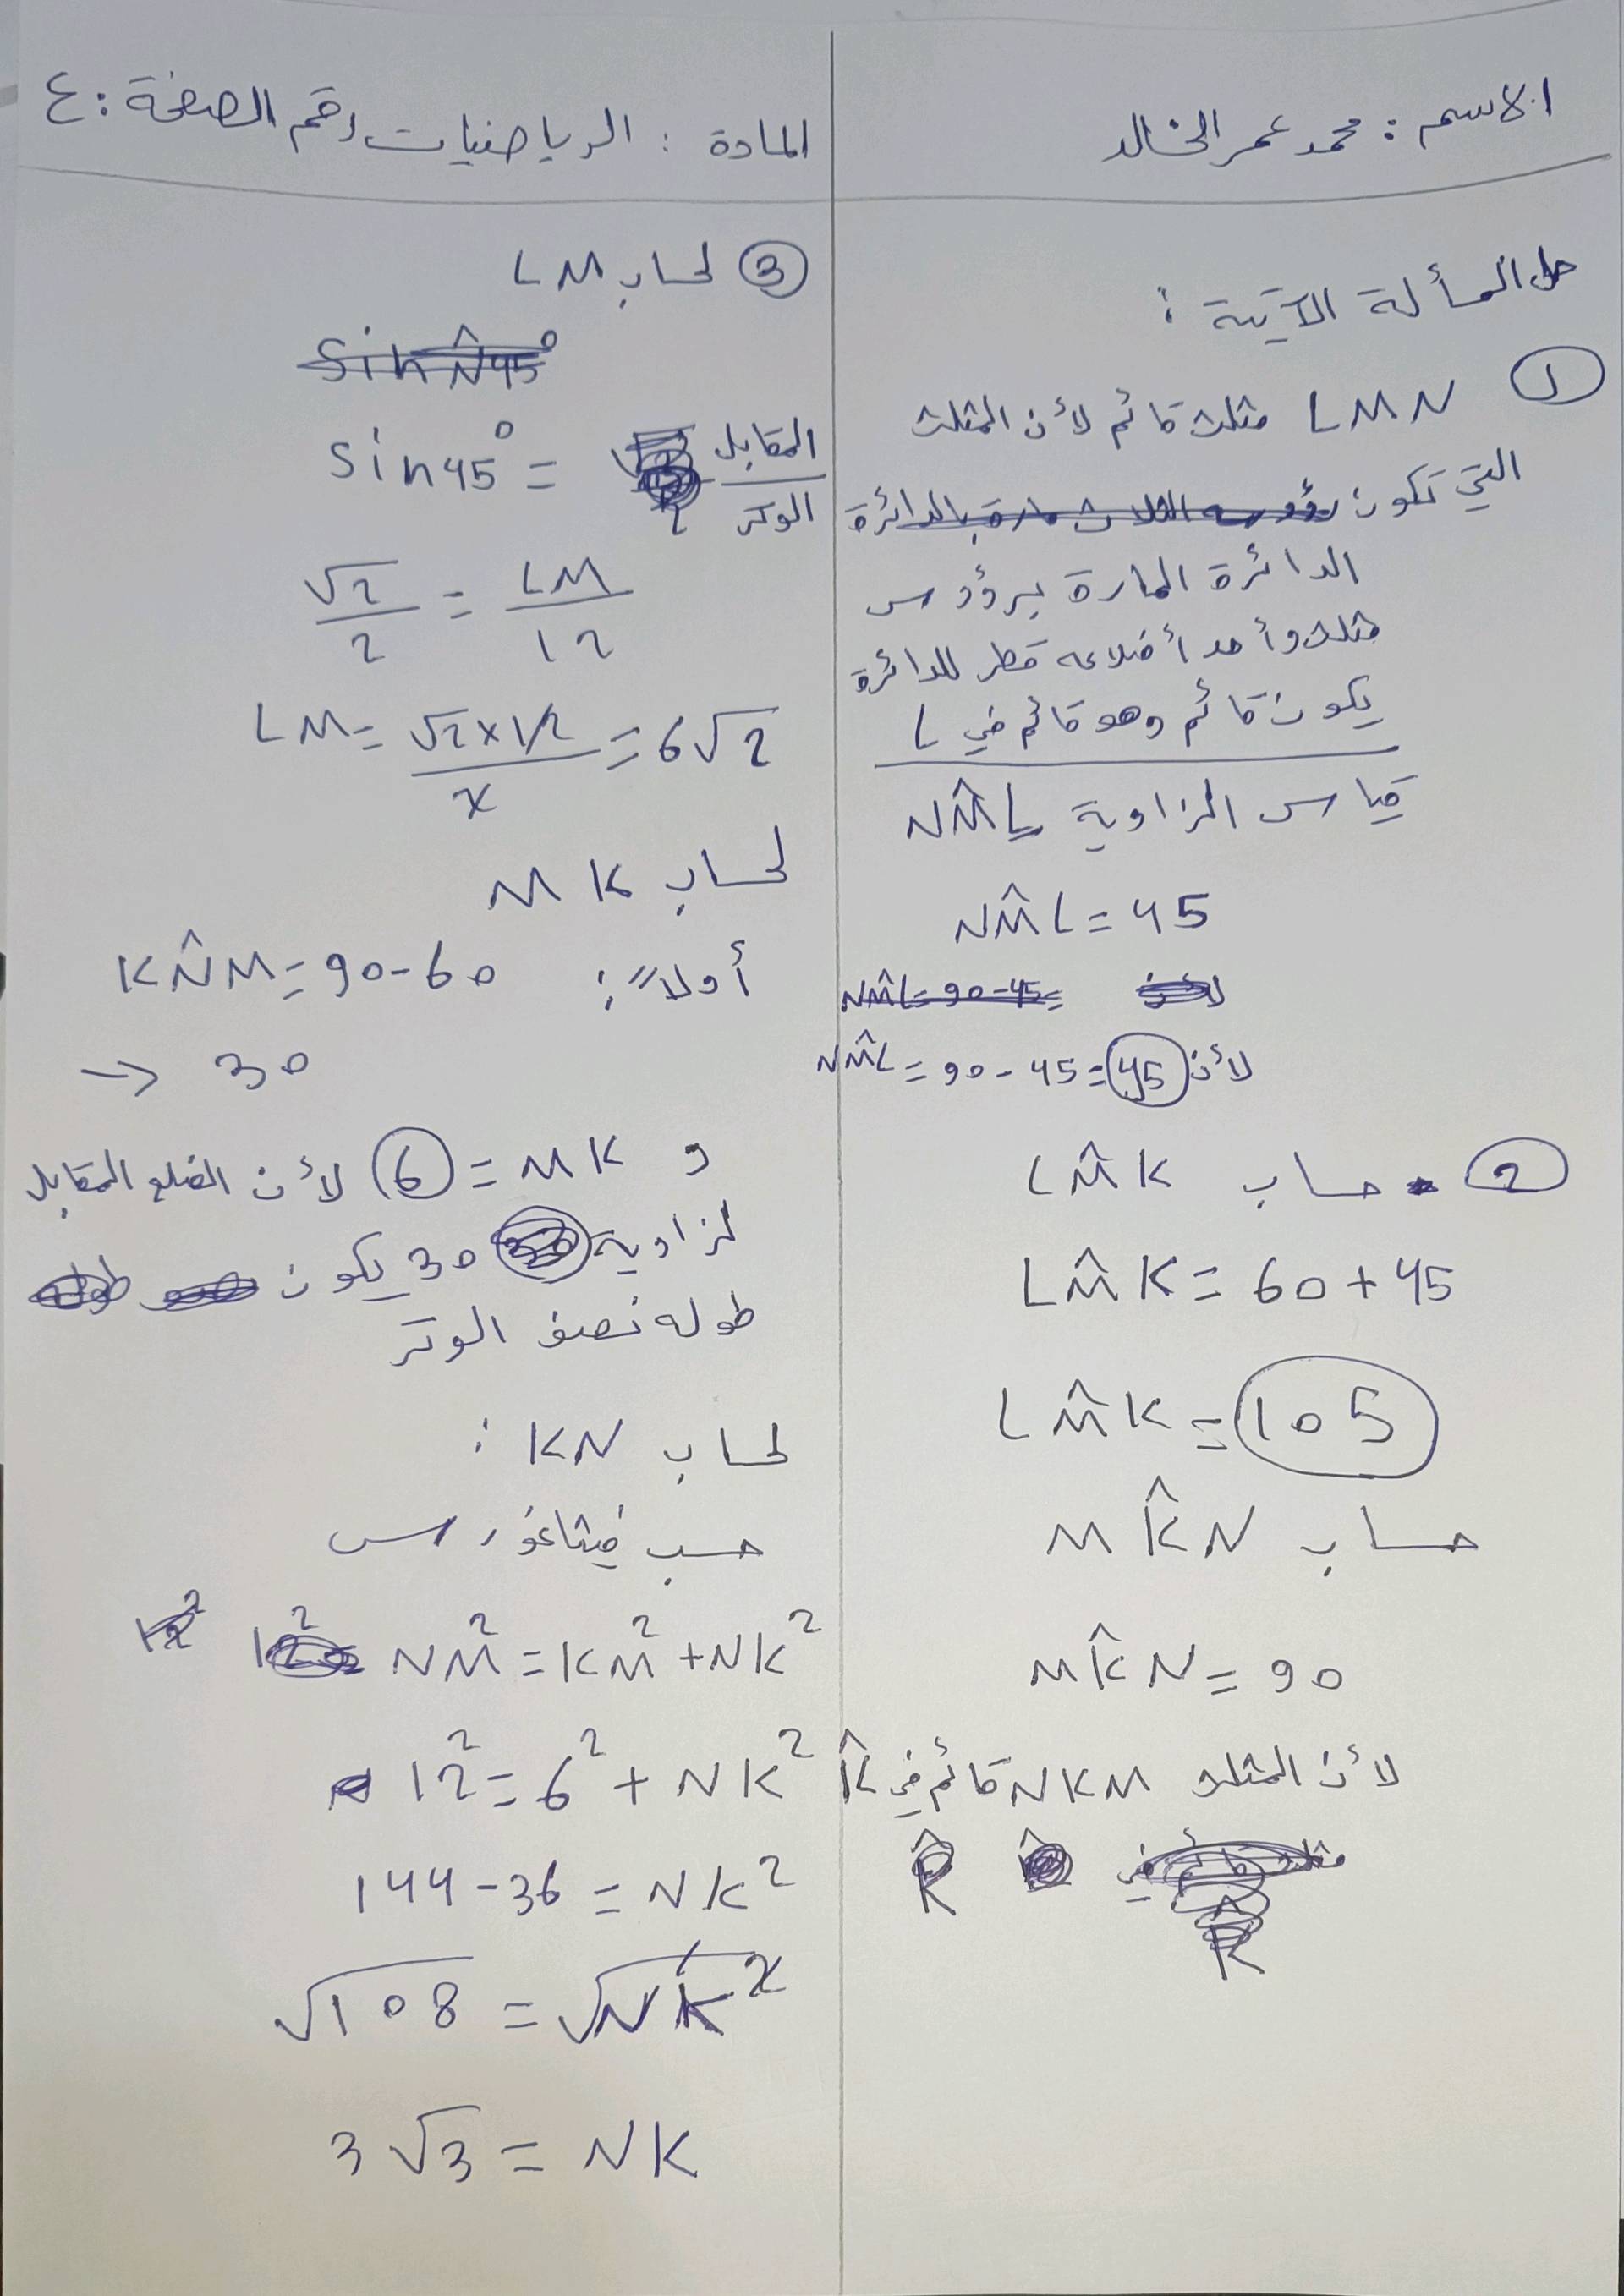 الاسم : محمد عمر الخالد
المادة : الرياضيات رقم الصفحة : ٤
حل المسألة الآتية :
① LMN مثلث قائم لأن المثلث
التي تكون رؤوسه الثلاث مارة بالدائرة
الدائرة المارة برؤوس
مثلث وأحد أضلاعه قطر للدائرة
يكون قائم وهو قائم في L
قياس الزاوية NM̂L
NM̂L = 45
لأن NM̂L = 90 - 45 =
لأن NM̂L = 90 - 45 = 45
② حساب LM̂K
LM̂K = 60 + 45
LM̂K = 105
حساب MK̂N
MK̂N = 90
لأن المثلث NKM قائم في K̂
مثلث قائم في K̂
K̂
③ لحساب LM
Sin N̂ 45°
Sin 45° = المقابل / الوتر
√2/2 = LM/12
LM = √2 × 12 / 2 = 6√2
لحساب MK
أولاً : KN̂M = 90 - 60
→ 30
و MK = 6 لأن الضلع المقابل
لزاوية 30 يكون طوله
طوله نصف الوتر
لحساب KN :
حسب فيثاغورس
12² 12² = NM² = KM² + NK²
12² = 6² + NK²
144 - 36 = NK²
√108 = √NK²
3√3 = NK